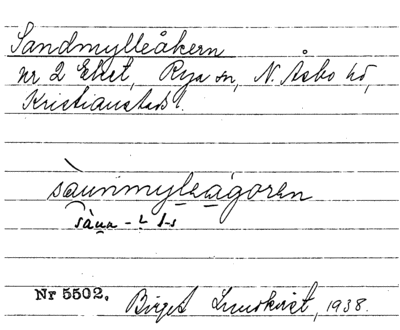 Sandmylleåkern
nr 2 Eket, Rya sn, N. Åsbo hd,
Kristianstads l.
sàunmyleågoren
sàun - 
Nr 5502. Birgit Lundkvist, 1938.